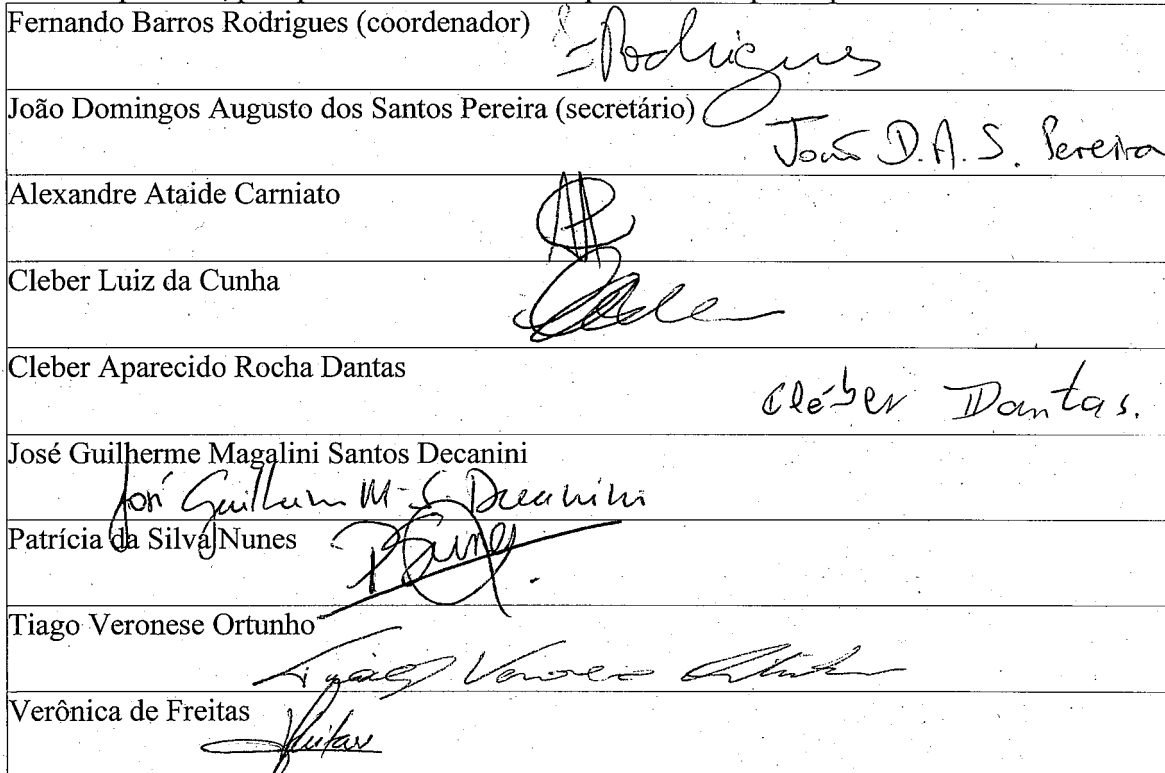 Fernando Barros Rodrigues (coordenador)
Rodrigues
João Domingos Augusto dos Santos Pereira (secretário)
João D. A. S. Pereira
Alexandre Ataide Carniato
Cleber Luiz da Cunha
Cleber Aparecido Rocha Dantas
Cléber Dantas.
José Guilherme Magalini Santos Decanini
José Guilherme M. S. Decanini
Patrícia da Silva Nunes
Tiago Veronese Ortunho
Verônica de Freitas